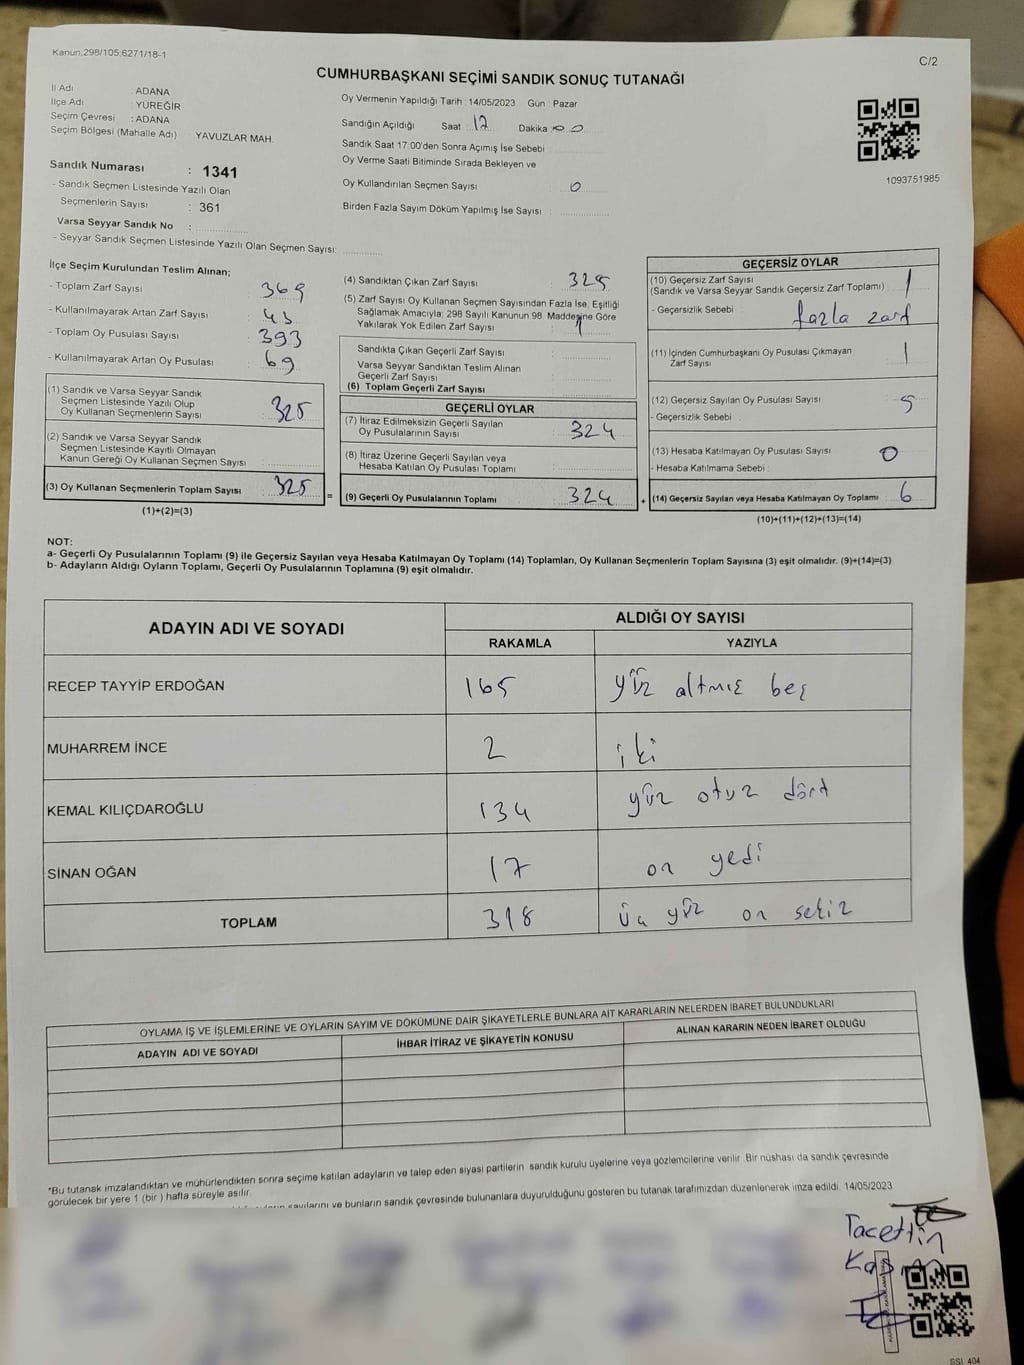 Kanun:298/105;6271/18-1
C/2
CUMHURBAŞKANI SEÇİMİ SANDIK SONUÇ TUTANAĞI
İl Adı : ADANA
İlçe Adı : YÜREĞİR
Seçim Çevresi : ADANA
Seçim Bölgesi (Mahalle Adı) : YAVUZLAR MAH.
Sandık Numarası : 1341
- Sandık Seçmen Listesinde Yazılı Olan
Seçmenlerin Sayısı : 361
Varsa Seyyar Sandık No :
- Seyyar Sandık Seçmen Listesinde Yazılı Olan Seçmen Sayısı:
Oy Vermenin Yapıldığı Tarih : 14/05/2023 Gün : Pazar
Sandığın Açıldığı Saat : 17 Dakika 00
Sandık Saat 17:00'den Sonra Açımış İse Sebebi
Oy Verme Saati Bitiminde Sırada Bekleyen ve
Oy Kullandırılan Seçmen Sayısı : 0
Birden Fazla Sayım Döküm Yapılmış İse Sayısı :
1093751985
İlçe Seçim Kurulundan Teslim Alınan;
- Toplam Zarf Sayısı : 369
- Kullanılmayarak Artan Zarf Sayısı : 43
- Toplam Oy Pusulası Sayısı : 393
- Kullanılmayarak Artan Oy Pusulası : 69
(1) Sandık ve Varsa Seyyar Sandık
Seçmen Listesinde Yazılı Olup
Oy Kullanan Seçmenlerin Sayısı : 325
(2) Sandık ve Varsa Seyyar Sandık
Seçmen Listesinde Kayıtlı Olmayan
Kanun Gereği Oy Kullanan Seçmen Sayısı :
(3) Oy Kullanan Seçmenlerin Toplam Sayısı : 325
(1)+(2)=(3)
(4) Sandıktan Çıkan Zarf Sayısı : 325
(5) Zarf Sayısı Oy Kullanan Seçmen Sayısından Fazla İse, Eşitliği
Sağlamak Amacıyla; 298 Sayılı Kanunun 98. Maddesine Göre
Yakılarak Yok Edilen Zarf Sayısı : 1
Sandıkta Çıkan Geçerli Zarf Sayısı :
Varsa Seyyar Sandıktan Teslim Alınan
Geçerli Zarf Sayısı :
(6) Toplam Geçerli Zarf Sayısı
GEÇERLİ OYLAR
(7) İtiraz Edilmeksizin Geçerli Sayılan
Oy Pusulalarının Sayısı : 324
(8) İtiraz Üzerine Geçerli Sayılan veya
Hesaba Katılan Oy Pusulası Toplamı
= (9) Geçerli Oy Pusulalarının Toplamı : 324
GEÇERSİZ OYLAR
(10) Geçersiz Zarf Sayısı
(Sandık ve Varsa Seyyar Sandık Geçersiz Zarf Toplamı) 1
- Geçersizlik Sebebi : fazla zarf
(11) İçinden Cumhurbaşkanı Oy Pusulası Çıkmayan
Zarf Sayısı : 1
(12) Geçersiz Sayılan Oy Pusulası Sayısı : 5
- Geçersizlik Sebebi :
(13) Hesaba Katılmayan Oy Pusulası Sayısı : 0
- Hesaba Katılmama Sebebi :
+ (14) Geçersiz Sayılan veya Hesaba Katılmayan Oy Toplamı : 6
(10)+(11)+(12)+(13)=(14)
NOT:
a- Geçerli Oy Pusulalarının Toplamı (9) ile Geçersiz Sayılan veya Hesaba Katılmayan Oy Toplamı (14) Toplamları, Oy Kullanan Seçmenlerin Toplam Sayısına (3) eşit olmalıdır. (9)+(14)=(3)
b- Adayların Aldığı Oyların Toplamı, Geçerli Oy Pusulalarının Toplamına (9) eşit olmalıdır.
ADAYIN ADI VE SOYADI
ALDIĞI OY SAYISI
RAKAMLA YAZIYLA
RECEP TAYYİP ERDOĞAN 165 yüz altmış beş
MUHARREM İNCE 2 iki
KEMAL KILIÇDAROĞLU 134 yüz otuz dört
SİNAN OĞAN 17 on yedi
TOPLAM 318 üç yüz on sekiz
OYLAMA İŞ VE İŞLEMLERİNE VE OYLARIN SAYIM VE DÖKÜMÜNE DAİR ŞİKAYETLERLE BUNLARA AİT KARARLARIN NELERDEN İBARET BULUNDUKLARI
ADAYIN ADI VE SOYADI İHBAR İTİRAZ VE ŞİKAYETİN KONUSU ALINAN KARARIN NEDEN İBARET OLDUĞU
*Bu tutanak imzalandıktan ve mühürlendikten sonra seçime katılan adayların ve talep eden siyasi partilerin sandık kurulu üyelerine veya gözlemcilerine verilir. Bir nüshası da sandık çevresinde
görülecek bir yere 1 (bir ) hafta süreyle asılır.
sayılarını ve bunların sandık çevresinde bulunanlara duyurulduğunu gösteren bu tutanak tarafımızdan düzenlenerek imza edildi. 14/05/2023
Tacettin
SSI 404